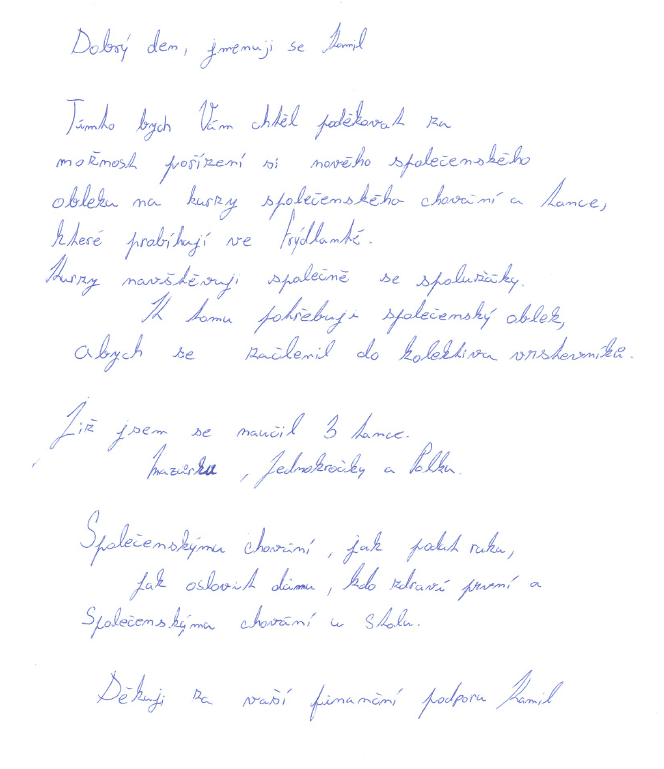 Dobrý den, jmenuji se Kamil
Tímto bych Vám chtěl poděkovat za
možnost pořízení si nového společenského
obleku na kurzy společenského chování a tance,
které probíhají ve Frýdlantě.
Kurzy navštěvuji společně se spolužáky.
K tomu potřebuji společenský oblek,
abych se začlenil do kolektivu vrstevníků.
Již jsem se naučil 3 tance.
mazurku, Jednokročky a Polku.
Společenskýmu chování, jak podat ruku,
jak oslovit dámu, kdo zdraví první a
Společenskýmu chování u stolu.
Děkuji za vaší finanční podporu Kamil